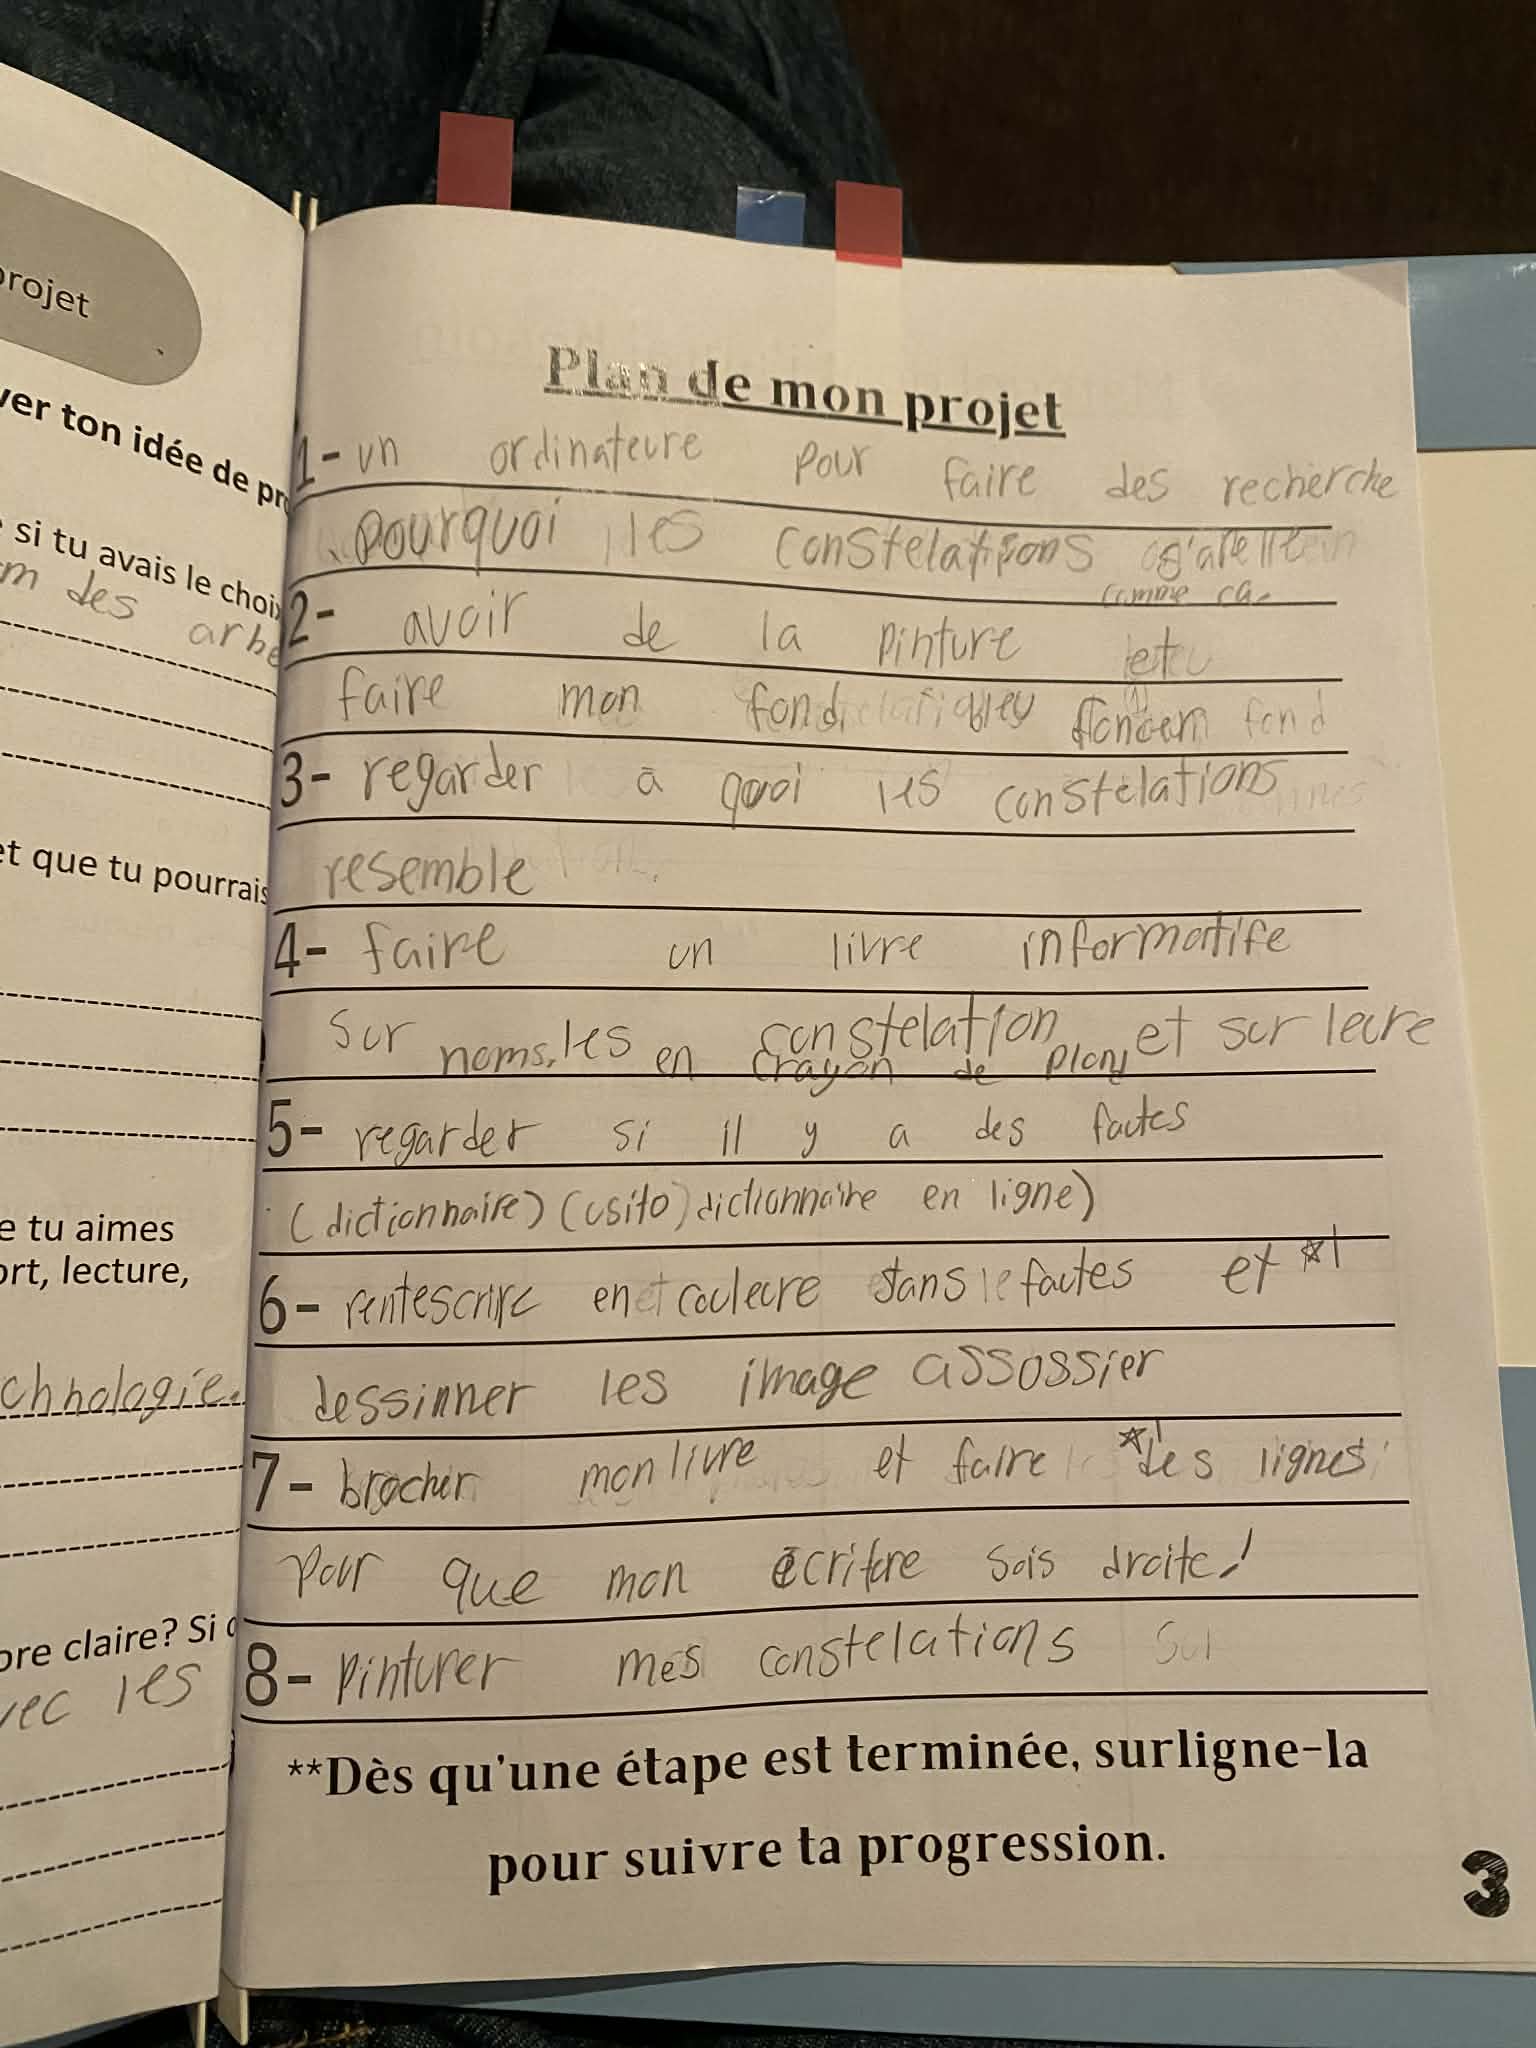 rojet
ver ton idée de pr
si tu avais le choi
m des arbe
et que tu pourrais
e tu aimes
ort, lecture,
chnologie.
ore claire? Si
vec les
Plan de mon projet
1- un ordinateure pour faire des recherche
pourquoi les constelations s'apelle
comme ça.
2- avoir de la pinture et
faire mon fond bleu foncer
3- regarder à quoi les constelations
resemble
4- faire un livre informatife
sur les constelation et sur leure
noms. en crayon de plond
5- regarder si il y a des fautes
(dictionnaire) (usito) dictionnaire en ligne)
6- en couleure sans fautes et *1
dessinner les image assossier
7- brocher mon livre et faire *1 des lignes
pour que mon écriture sois droite!
8- pinturer mes constelations
**Dès qu'une étape est terminée, surligne-la
pour suivre ta progression.
3